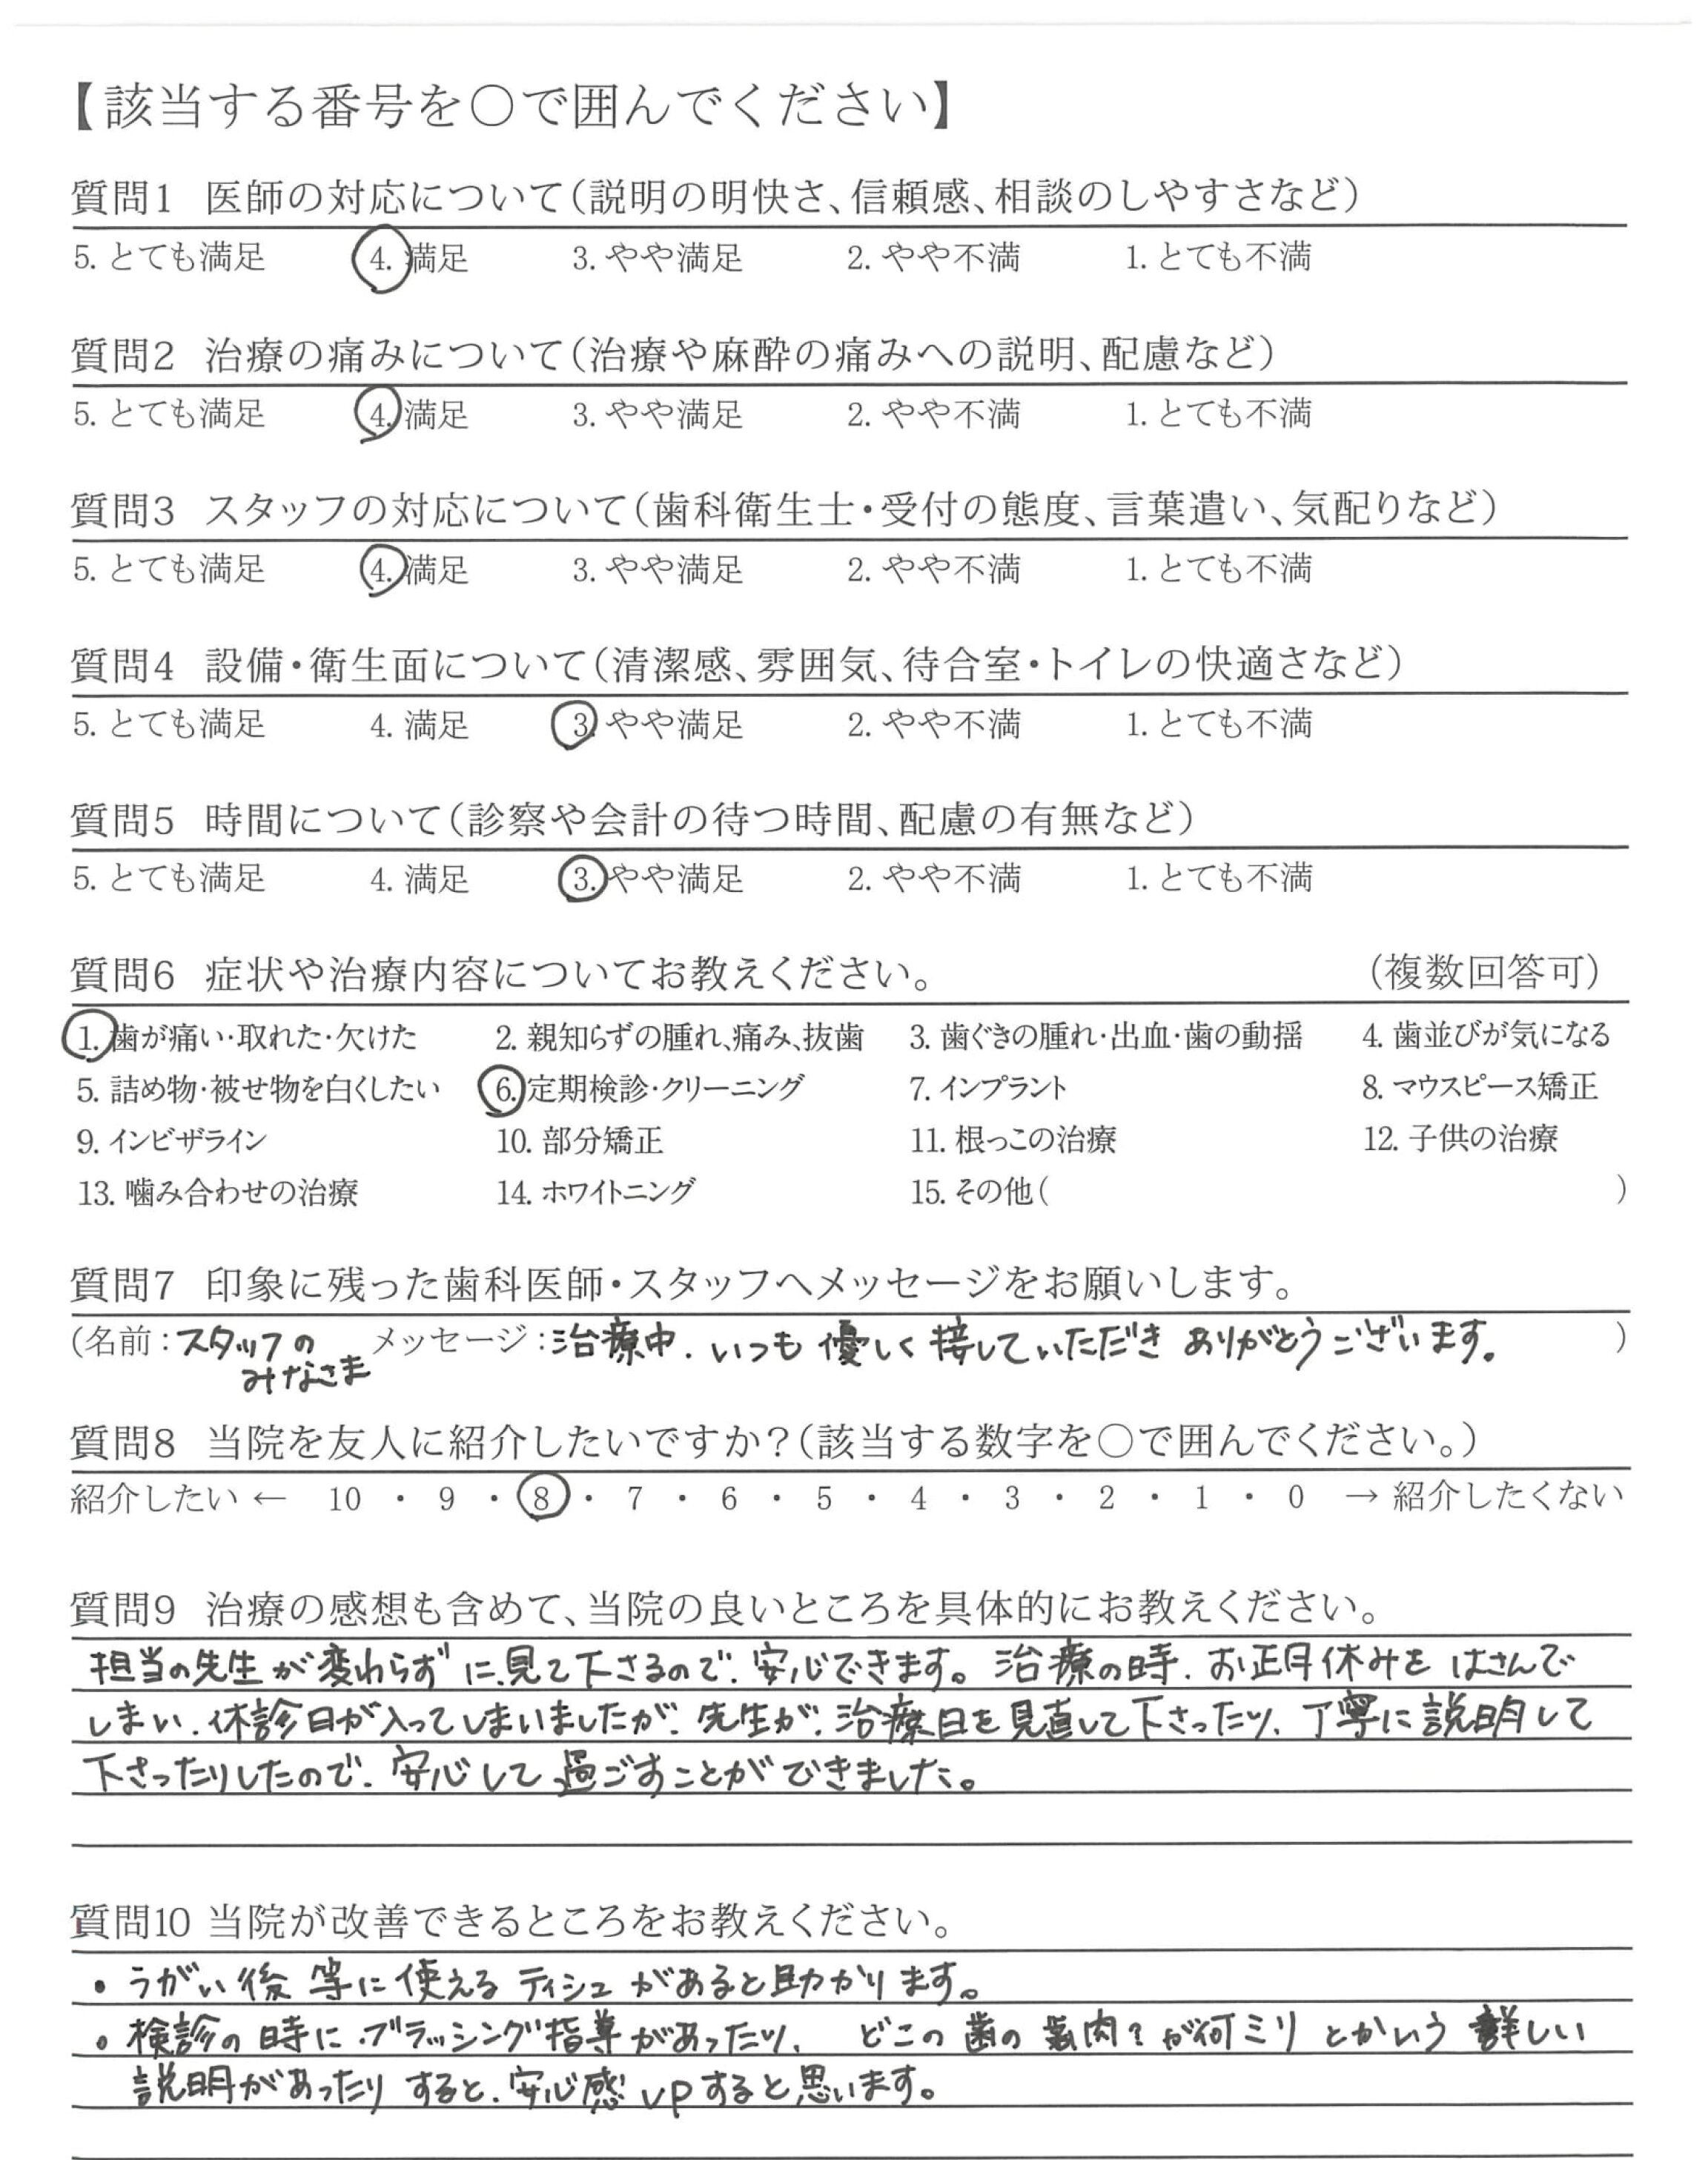 【該当する番号を○で囲んでください】
質問1 医師の対応について(説明の明快さ、信頼感、相談のしやすさなど)
5. とても満足 4. 満足 3. やや満足 2. やや不満 1. とても不満
質問2 治療の痛みについて(治療や麻酔の痛みへの説明、配慮など)
5. とても満足 4. 満足 3. やや満足 2. やや不満 1. とても不満
質問3 スタッフの対応について(歯科衛生士・受付の態度、言葉遣い、気配りなど)
5. とても満足 4. 満足 3. やや満足 2. やや不満 1. とても不満
質問4 設備・衛生面について(清潔感、雰囲気、待合室・トイレの快適さなど)
5. とても満足 4. 満足 3. やや満足 2. やや不満 1. とても不満
質問5 時間について(診察や会計の待つ時間、配慮の有無など)
5. とても満足 4. 満足 3. やや満足 2. やや不満 1. とても不満
質問6 症状や治療内容についてお教えください。 (複数回答可)
1. 歯が痛い・取れた・欠けた 2. 親知らずの腫れ、痛み、抜歯 3. 歯ぐきの腫れ・出血・歯の動揺 4. 歯並びが気になる
5. 詰め物・被せ物を白くしたい 6. 定期検診・クリーニング 7. インプラント 8. マウスピース矯正
9. インビザライン 10. 部分矯正 11. 根っこの治療 12. 子供の治療
13. 噛み合わせの治療 14. ホワイトニング 15. その他( )
質問7 印象に残った歯科医師・スタッフへメッセージをお願いします。
(名前:スタッフの みなさま メッセージ:治療中、いつも優しく接していただきありがとうございます。 )
質問8 当院を友人に紹介したいですか?(該当する数字を○で囲んでください。)
紹介したい ← 10 ・ 9 ・ 8 ・ 7 ・ 6 ・ 5 ・ 4 ・ 3 ・ 2 ・ 1 ・ 0 → 紹介したくない
質問9 治療の感想も含めて、当院の良いところを具体的にお教えください。
担当の先生が変わらずに見て下さるので、安心できます。治療の時、お正月休みをはさんで
しまい、休診日が入ってしまいましたが、先生が、治療日を見直して下さったり、丁寧に説明して
下さったりしたので、安心して過ごすことができました。
質問10 当院が改善できるところをお教えください。
・うがい後等に使えるティシュがあると助かります。
・検診の時に、ブラッシング指導があったり、どこの歯の歯肉?が何ミリとかいう詳しい
説明があったりすると、安心感upすると思います。